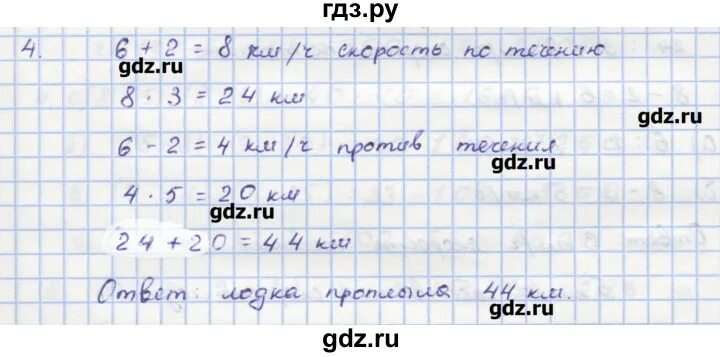 гдз.ру
4. 6 + 2 = 8 км/ч скорость по течению
gdz.ru
8 · 3 = 24 км
gdz.ru
6 - 2 = 4 км/ч против течения
gdz.ru
4 · 5 = 20 км
gdz.ru
24 + 20 = 44 км
Ответ: лодка проплыла 44 км.
gdz.ru
gdz.ru